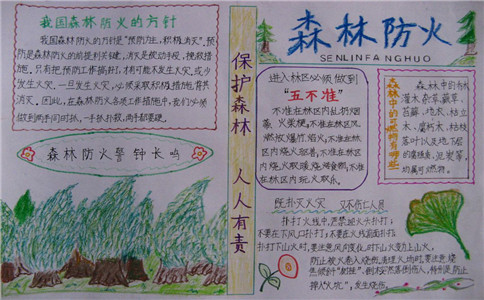 我国森林防火的方针
我国森林防火的方针是“预防为主，积极消灭”。预
防是森林防火的前提和关键，消灭是被动手段，挽救措
施。只有把预防工作搞好，才有可能不发生火灾，或少
发生火灾。一旦发生火灾，必须采取积极措施，背其
消灭。因此，在森林防火各项工作措施中，我们必须
做到两手同时抓，一手抓扑救，两手都要硬。
森林防火警钟长鸣
保护森林 人人有责
森林防火
SENLINFANGHUO
进入林区必须做到
“五不准”
不准在林区内乱扔烟
蒂、火柴梗，不准在林区风
燃放爆竹、焰火，不准在林区
内烧火驱兽，不准在林区
内烧火取暖、烧烤食物，不准
在林区内玩火取乐。
森林中的可燃物有哪些
森林中的树
灌木、杂草、蕨草、
苔藓、地衣、枯立
木、腐朽木、枯枝
落叶以及地下层
的腐殖质、泥炭等，
均属可燃物。
既扑灭火灾 又不伤亡人员
扑打火线中，严禁迎火头扑打；
不要在下风口扑打；不要在火线前面扑打；
扑打下山火时，要注意风向变化，时下山火变为上山火，
防止被火卷入烧伤；清理火场时，要注意烧
焦倾斜“树挂”、倒木突然落倒伤人，特别是防止
掉入“火坑”，发生烧伤。